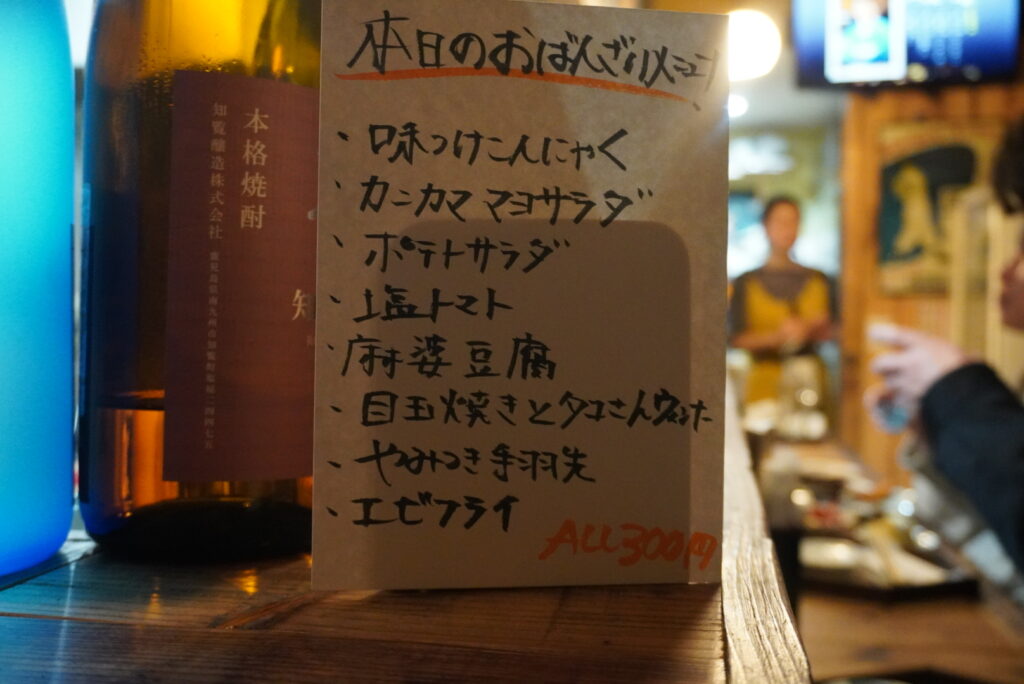 本日のおばんざいメニュー
、味つけこんにゃく
、カニカママヨサラダ
、ポテトサラダ
、塩トマト
、麻婆豆腐
、目玉焼きとタコさんウィンナー
、やみつき手羽先
、エビフライ
ALL300円
本格焼酎
知覧醸造株式会社
鹿児島県南九州市知覧町塩屋二四四七五
知